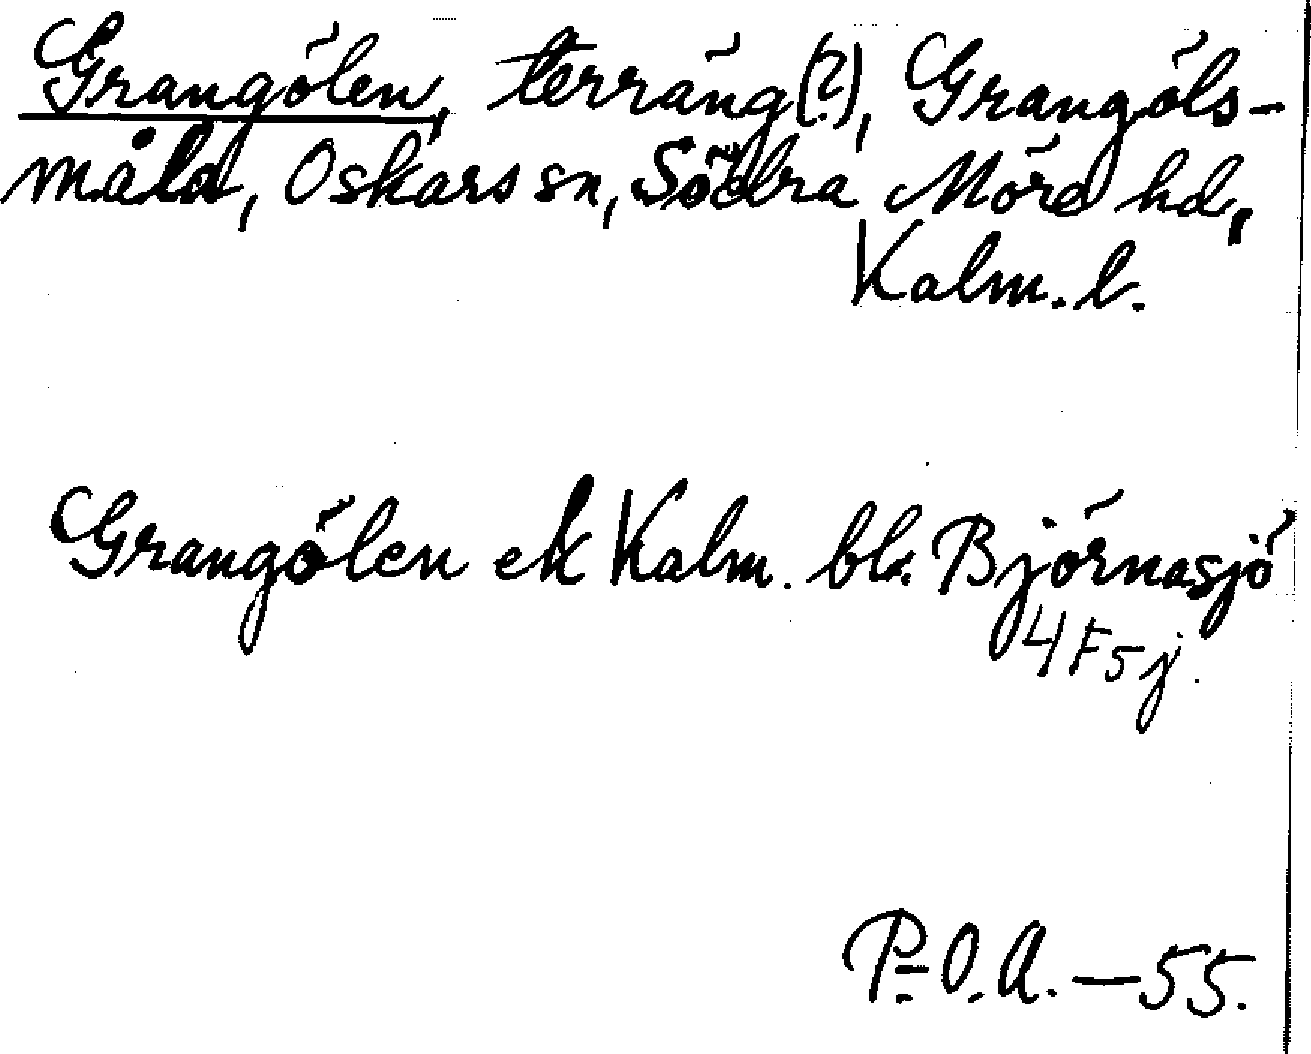 Grangölen, terräng(?), Grangöls-
måla, Oskars sn, Södra Möre hd,
Kalm. l.
Grangölen ek Kalm. bl. Björnasjö
4F5j.
P.-O.A. — 55.